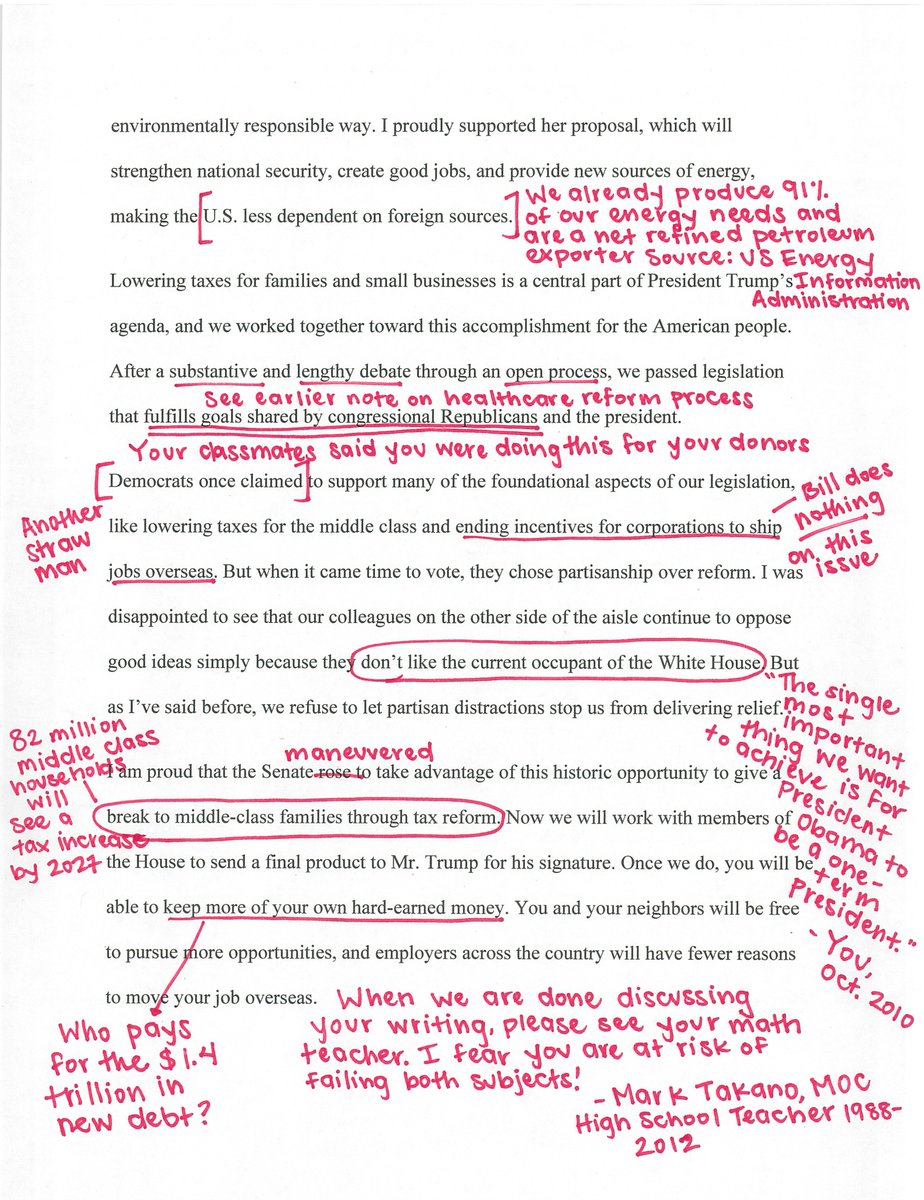 environmentally responsible way. I proudly supported her proposal, which will
strengthen national security, create good jobs, and provide new sources of energy,
making the [U.S. less dependent on foreign sources.]
We already produce 91%
of our energy needs and
are a net refined petroleum
exporter Source: US Energy
Information
Administration
Lowering taxes for families and small businesses is a central part of President Trump's
agenda, and we worked together toward this accomplishment for the American people.
After a substantive and lengthy debate through an open process, we passed legislation
See earlier note on healthcare reform process
that fulfills goals shared by congressional Republicans and the president.
Your classmates said you were doing this for your donors
[Democrats once claimed] to support many of the foundational aspects of our legislation,
Another
straw
man
like lowering taxes for the middle class and ending incentives for corporations to ship
Bill does
nothing
on this
issue
jobs overseas. But when it came time to vote, they chose partisanship over reform. I was
disappointed to see that our colleagues on the other side of the aisle continue to oppose
good ideas simply because they don't like the current occupant of the White House. But
"The single
most
important
thing we want
to achieve is for
President
Obama to
be a one-
term
President."
- You,
Oct. 2010
as I've said before, we refuse to let partisan distractions stop us from delivering relief.
82 million
middle class
households
will
see a
tax increase
by 2027
maneuvered
I am proud that the Senate rose to take advantage of this historic opportunity to give a
break to middle-class families through tax reform. Now we will work with members of
the House to send a final product to Mr. Trump for his signature. Once we do, you will be
able to keep more of your own hard-earned money. You and your neighbors will be free
to pursue more opportunities, and employers across the country will have fewer reasons
to move your job overseas.
Who pays
for the $1.4
trillion in
new debt?
When we are done discussing
your writing, please see your math
teacher. I fear you are at risk of
failing both subjects!
- Mark Takano, MOC
High School Teacher 1988-
2012